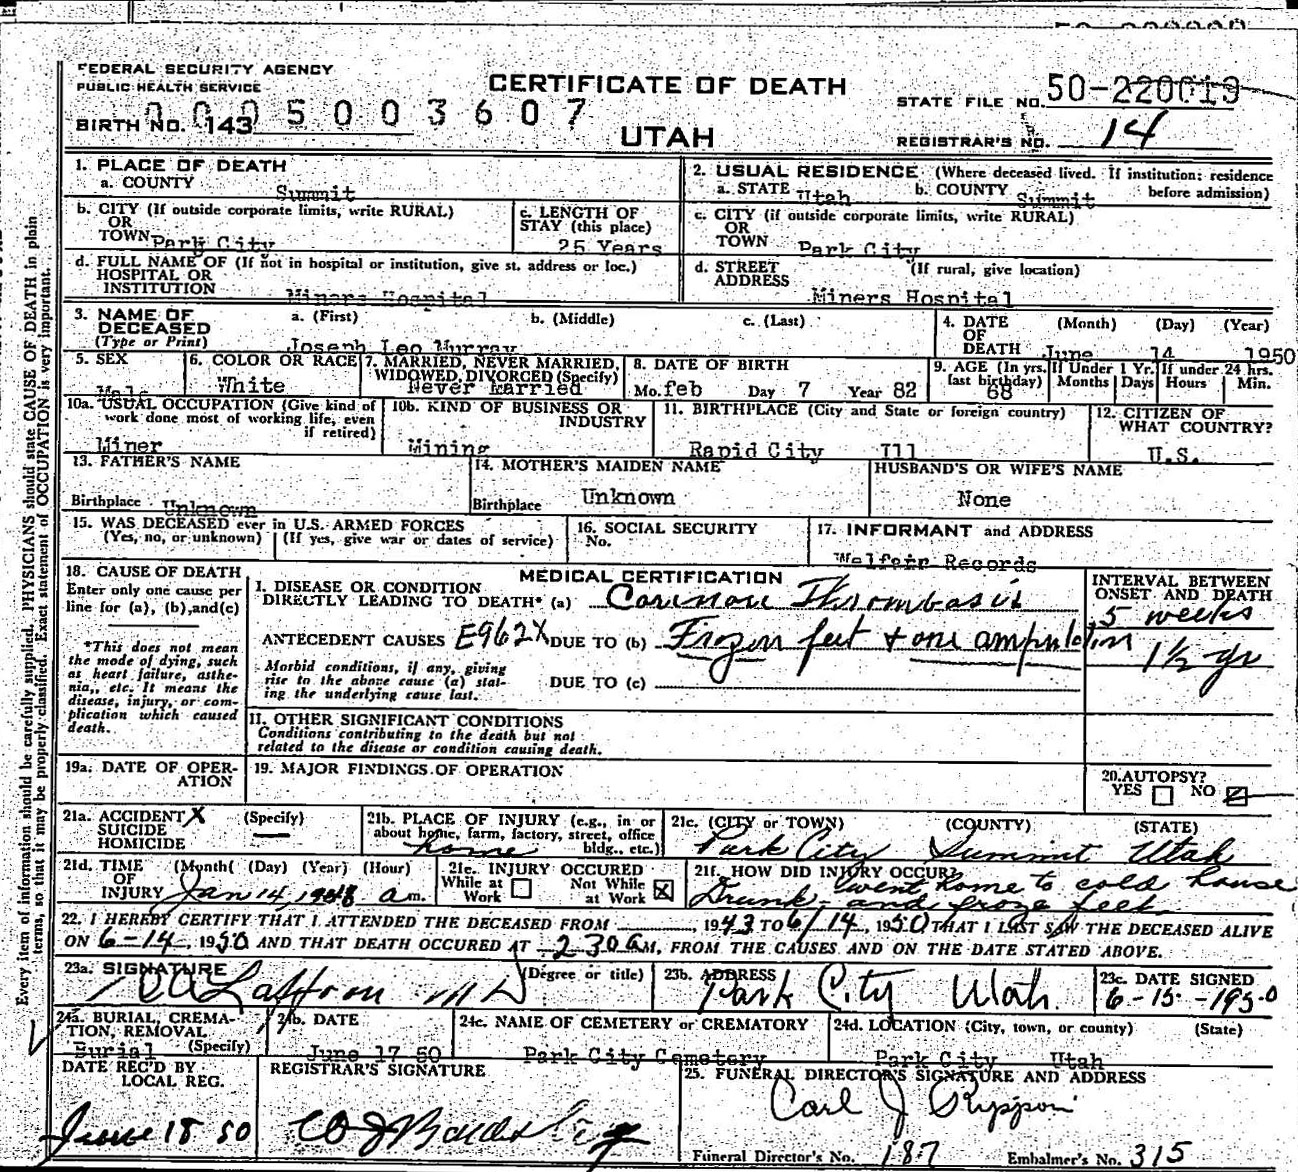 FEDERAL SECURITY AGENCY
PUBLIC HEALTH SERVICE
CERTIFICATE OF DEATH
UTAH
STATE FILE NO. 50-220019
0005003607
BIRTH NO. 143
REGISTRAR'S NO. 14
Every item of information should be carefully supplied. PHYSICIANS should state CAUSE OF DEATH in plain
terms, so that it may be properly classified. Exact statement of OCCUPATION is very important.
1. PLACE OF DEATH
a. COUNTY Summit
2. USUAL RESIDENCE (Where deceased lived. If institution: residence
before admission)
a. STATE Utah b. COUNTY Summit
b. CITY (If outside corporate limits, write RURAL)
OR
TOWN Park City
c. LENGTH OF
STAY (this place)
25 Years
c. CITY (if outside corporate limits, write RURAL)
OR
TOWN Park City
d. FULL NAME OF (If not in hospital or institution, give st. address or loc.)
HOSPITAL OR
INSTITUTION Miners Hospital
d. STREET (If rural, give location)
ADDRESS
Miners Hospital
3. NAME OF
DECEASED
(Type or Print)
a. (First) b. (Middle) c. (Last)
Joseph Leo Murray
4. DATE
OF
DEATH
(Month) (Day) (Year)
June 14 1950
5. SEX
Male
6. COLOR OR RACE
White
7. MARRIED, NEVER MARRIED,
WIDOWED, DIVORCED (Specify)
Never Married
8. DATE OF BIRTH
Mo. feb Day 7 Year 82
9. AGE (In yrs.
last birthday)
68
If Under 1 Yr.
Months Days
If under 24 hrs.
Hours Min.
10a. USUAL OCCUPATION (Give kind of
work done most of working life, even
if retired)
Miner
10b. KIND OF BUSINESS OR
INDUSTRY
Mining
11. BIRTHPLACE (City and State or foreign country)
Rapid City Ill
12. CITIZEN OF
WHAT COUNTRY?
U.S.
13. FATHER'S NAME
Birthplace Unknown
14. MOTHER'S MAIDEN NAME
Unknown
Birthplace
HUSBAND'S OR WIFE'S NAME
None
15. WAS DECEASED ever in U.S. ARMED FORCES
(Yes, no, or unknown) (If yes, give war or dates of service)
16. SOCIAL SECURITY
No.
17. INFORMANT and ADDRESS
Welfair Records
18. CAUSE OF DEATH
Enter only one cause per
line for (a), (b), and (c)
*This does not mean
the mode of dying, such
as heart failure, asthe-
nia,, etc. It means the
disease, injury, or com-
plication which caused
death.
MEDICAL CERTIFICATION
I. DISEASE OR CONDITION
DIRECTLY LEADING TO DEATH* (a) Thrombasis
ANTECEDENT CAUSES E962X DUE TO (b) Frozen feet + one amputation
Morbid conditions, if any, giving
rise to the above cause (a) stat-
ing the underlying cause last.
DUE TO (c)
INTERVAL BETWEEN
ONSET AND DEATH
5 weeks
1½ yr
II. OTHER SIGNIFICANT CONDITIONS
Conditions contributing to the death but not
related to the disease or condition causing death.
19a. DATE OF OPER-
ATION
19. MAJOR FINDINGS OF OPERATION
20. AUTOPSY?
YES NO
21a. ACCIDENT X (Specify)
SUICIDE
HOMICIDE
21b. PLACE OF INJURY (e.g., in or
about home, farm, factory, street, office
bldg., etc.)
home
21c. (CITY or TOWN) (COUNTY) (STATE)
Park City Summit Utah
21d. TIME (Month( (Day) (Year) (Hour)
OF
INJURY Jan 14, 1948 a m.
21e. INJURY OCCURED
While at
Work
Not While
at Work X
21f. HOW DID INJURY OCCUR?
went home to cold house
Drunk - and froze feet
22. I HEREBY CERTIFY THAT I ATTENDED THE DECEASED FROM , 1943 TO 6/14, 1950 THAT I LAST SAW THE DECEASED ALIVE
ON 6-14, 1950 AND THAT DEATH OCCURED AT 230 AM, FROM THE CAUSES AND ON THE DATE STATED ABOVE.
23a. SIGNATURE (Degree or title)
MD
23b. ADDRESS
Park City Utah
23c. DATE SIGNED
6-15-1950
24a. BURIAL, CREMA-
TION, REMOVAL
(Specify)
Burial
24b. DATE
June 17 50
24c. NAME OF CEMETERY or CREMATORY
Park City Cemetery
24d. LOCATION (City, town, or county) (State)
Park City Utah
DATE REC'D BY
LOCAL REG.
June 18 50
REGISTRAR'S SIGNATURE
25. FUNERAL DIRECTOR'S SIGNATURE AND ADDRESS
Carl J
Funeral Director's No. 187 Embalmer's No. 315